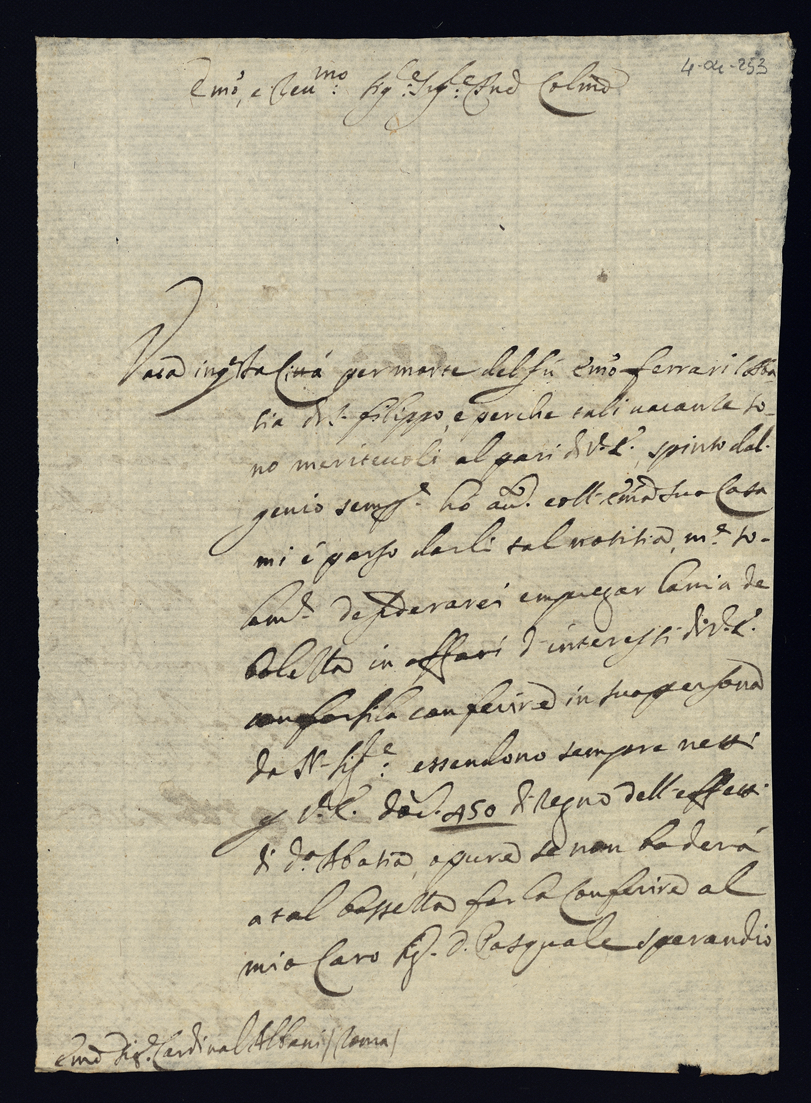 4-04-253
Emo, e Reumo: Sigr: Sigr: Pne Colmo
Vaca in qsta Città per morte del fù Emo Ferrari l'Abba
tia di S. Filippo, e perche tali uacanze so-
no meriteuoli al pari di V. E., spinto dal
genio sempre ho au. coll' Ema sua Casa
mi é parso darli tal notitia, me so-
lamte desiderarei empiegar la mia de
boletta in affari d'interessi di V. E.
con farsila conferire in sua persona
da N. Sigre: essendono sempre netti
p V. E. doc. 450 di Regno dell'effetti
di da Abatia, o pure se non baderà
a tal bassetta farla Conferire al
mio Caro Sigr. D. Pasquale sperandio
Emo Sigr. Cardinal Albani / Roma /